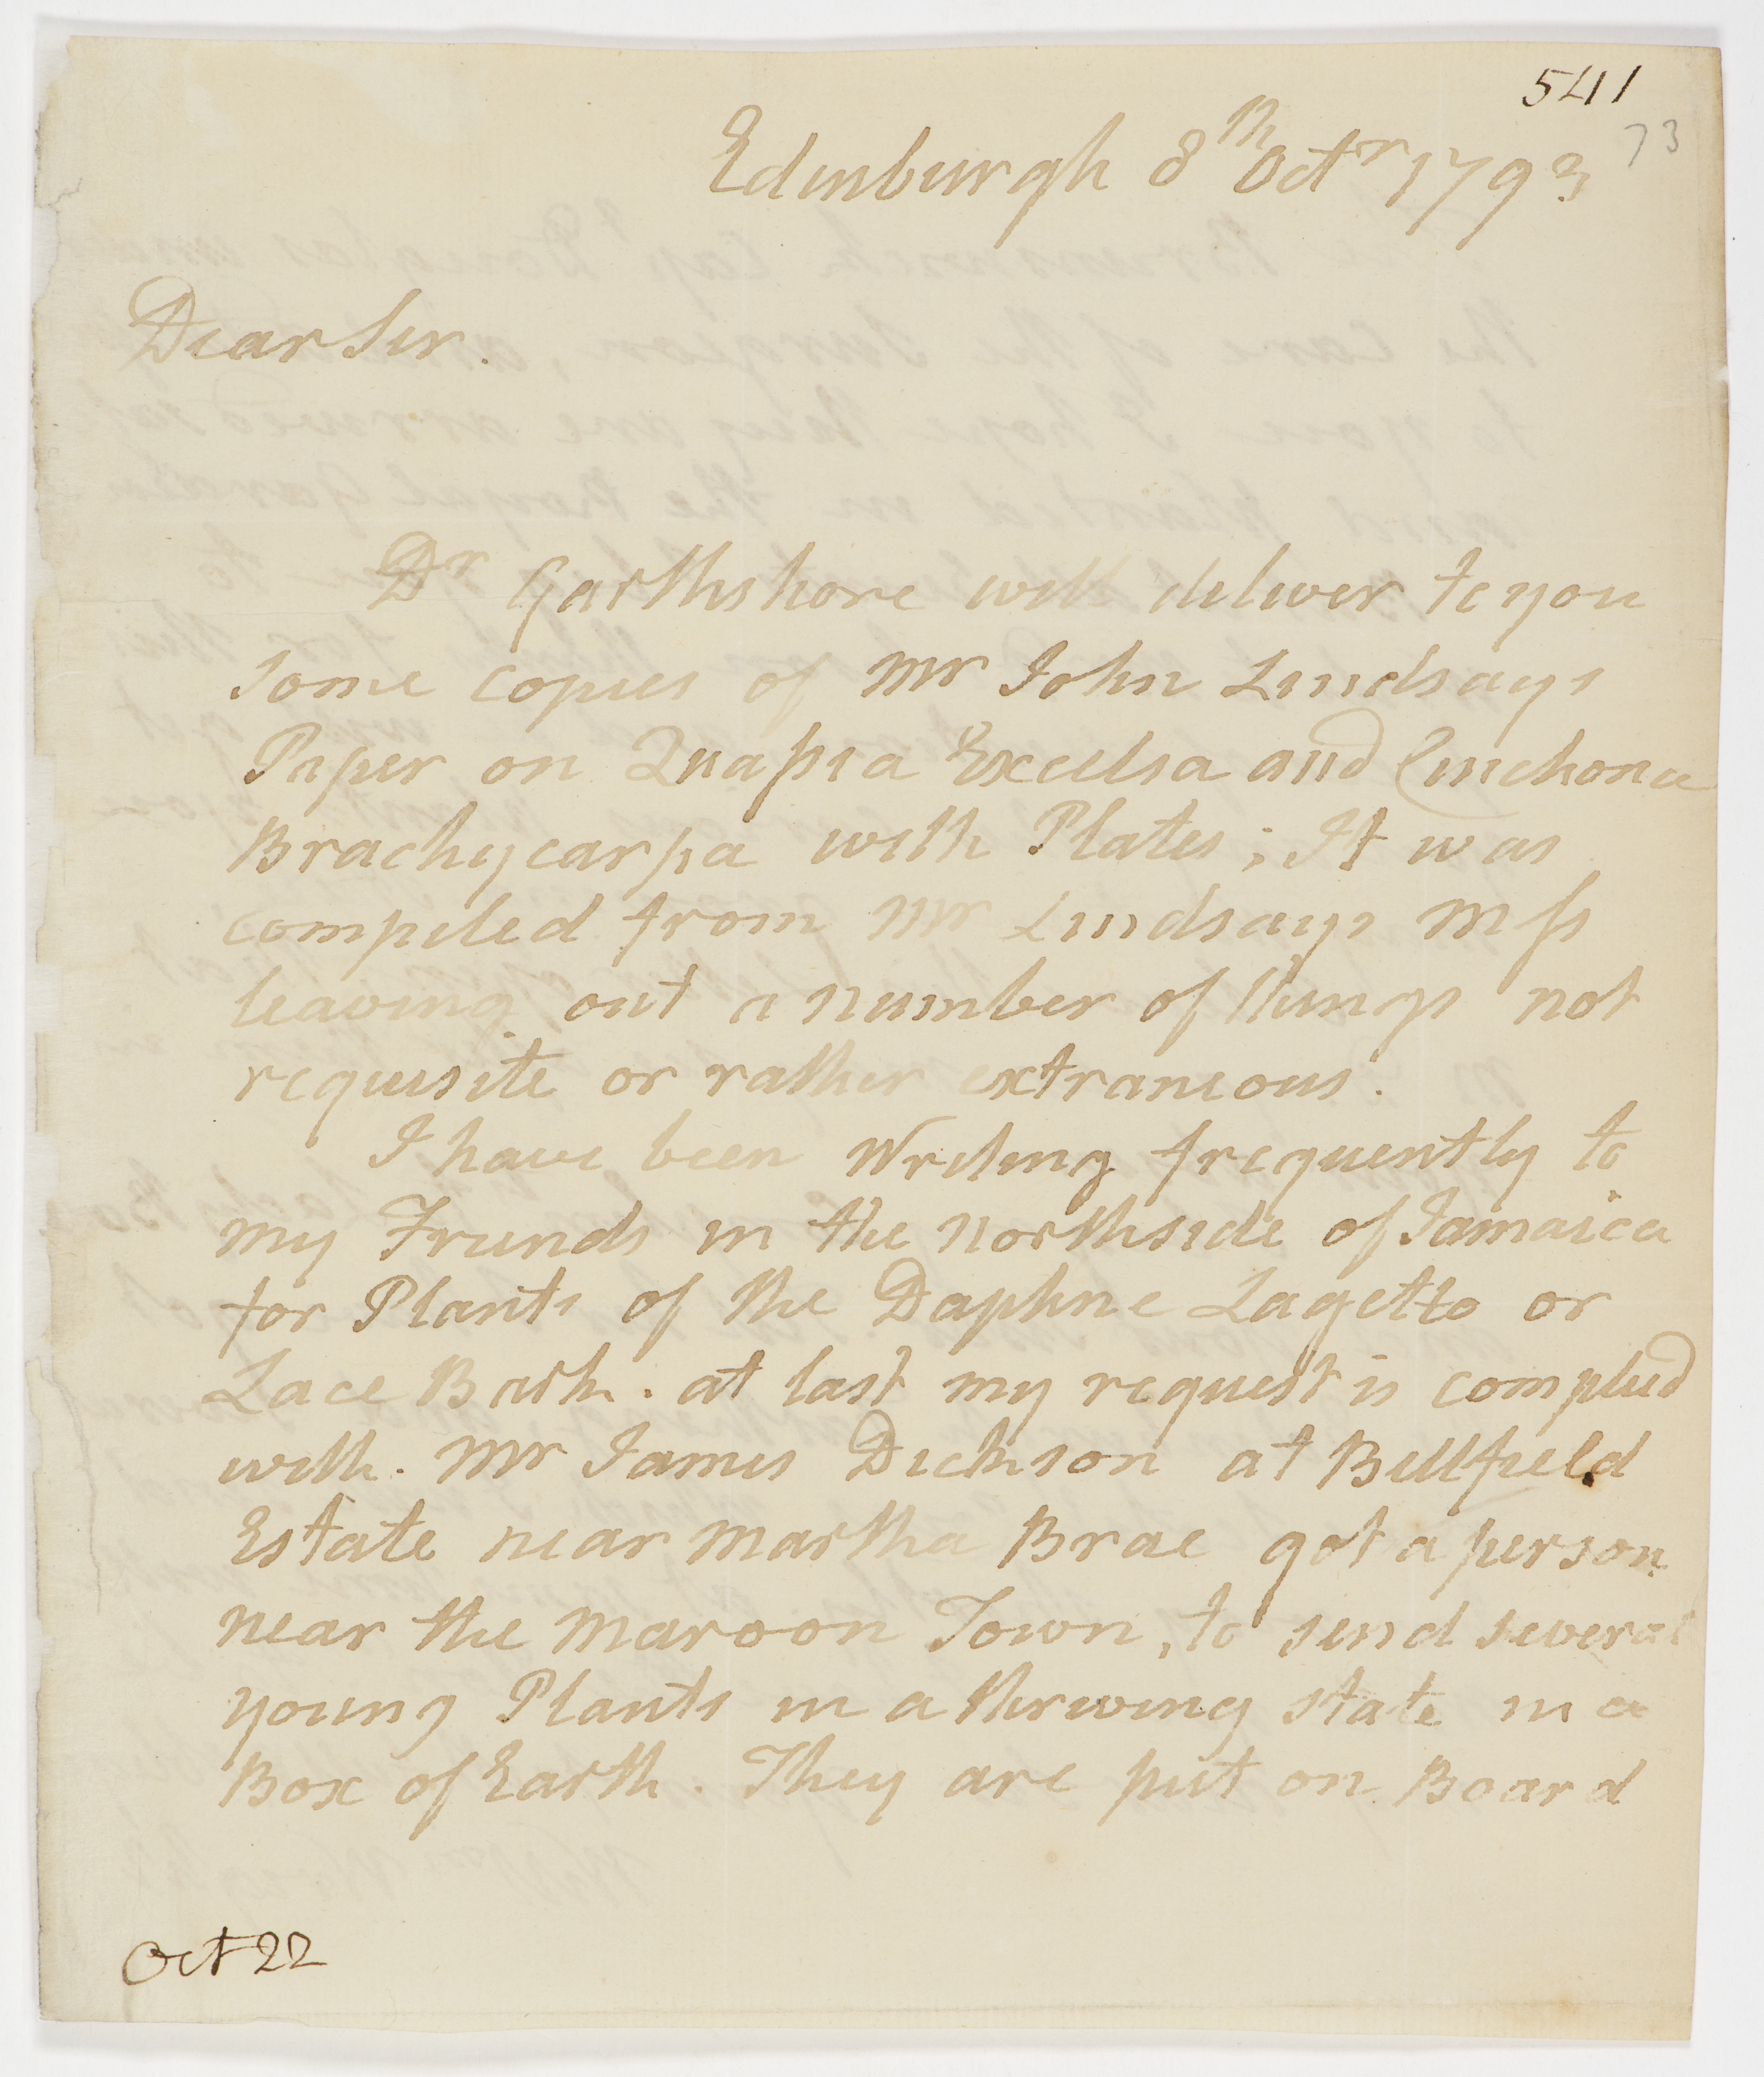 541
73
Edinburgh 8th Octr 1793
Dear Sir.
Dr Garthshore will deliver to you
some copies of Mr John Lindsays
Paper on Quassia Excelsa and Cinchona
Brachycarpa with Plates; It was
compiled from Mr Lindsays Mss
leaving out a number of things not
requisite or rather extraneous.
I have been Writing frequently to
my Friends in the Northside of Jamaica
for Plants of the Daphne Lagetto or
Lace Bark. at last my request is complied
with. Mr James Dickson at Bellfield
Estate near Martha Brae got a person
near the Maroon Town, to send several
young Plants in a thriving state in a
Box of Earth. They are put on Board
Oct 22